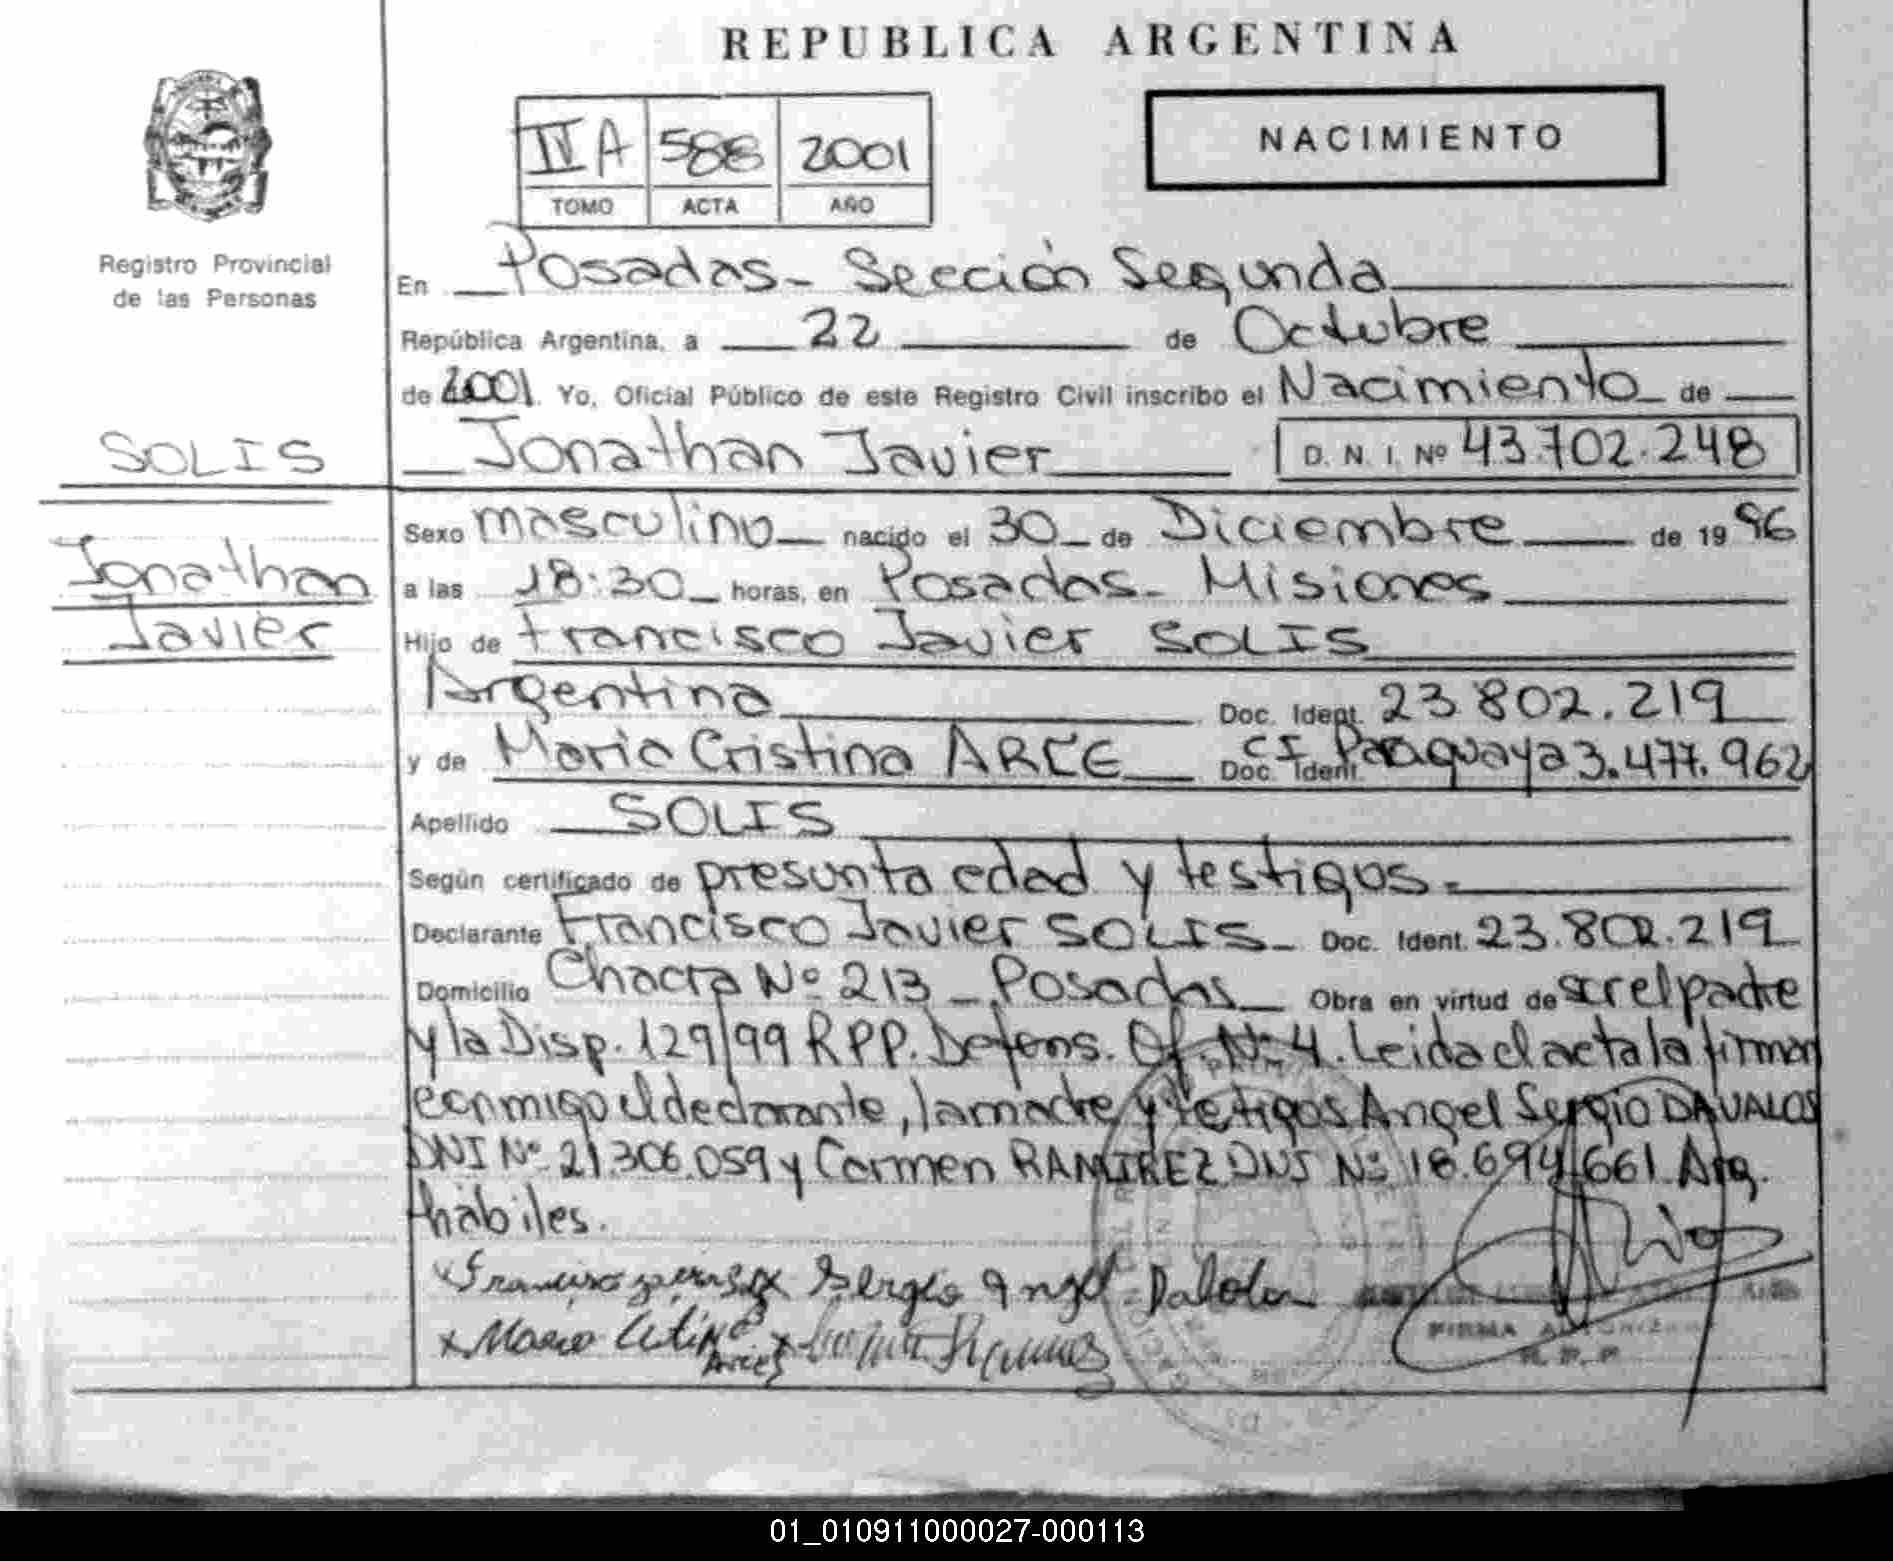 REPUBLICA ARGENTINA
IV A 588 2001
TOMO ACTA AÑO
NACIMIENTO
Registro Provincial
de las Personas
En Posadas - Sección Segunda
República Argentina, a 22 de Octubre
de 2001. Yo, Oficial Público de este Registro Civil inscribo el Nacimiento de
SOLIS
Jonathan Javier D. N. I. Nº 43.702.248
Jonathan
Javier
Sexo masculino nacido el 30 de Diciembre de 1996
a las 18:30 horas, en Posadas - Misiones
Hijo de Francisco Javier SOLIS
Argentina Doc. Ident. 23.802.219
y de Maria Cristina ARCE Doc. Ident. CI Paraguaya 3.477.962
Apellido SOLIS
Según certificado de presunta edad y testigos.
Declarante Francisco Javier SOLIS Doc. Ident. 23.802.219
Domicilio Chacra Nº 213 - Posadas Obra en virtud de scr el padre
y la Disp. 129/99 RPP. Defens. Of. Nº 4. Leida el acta la firman
conmigo el declarante, la madre y testigos Angel Sergio DAVALOS
DNI Nº 21.306.059 y Carmen RAMIREZ DNI Nº 18.694.661 Arg.
hábiles.
Sergio Angel
Maria
FIRMA
R.P.P
01_010911000027-000113